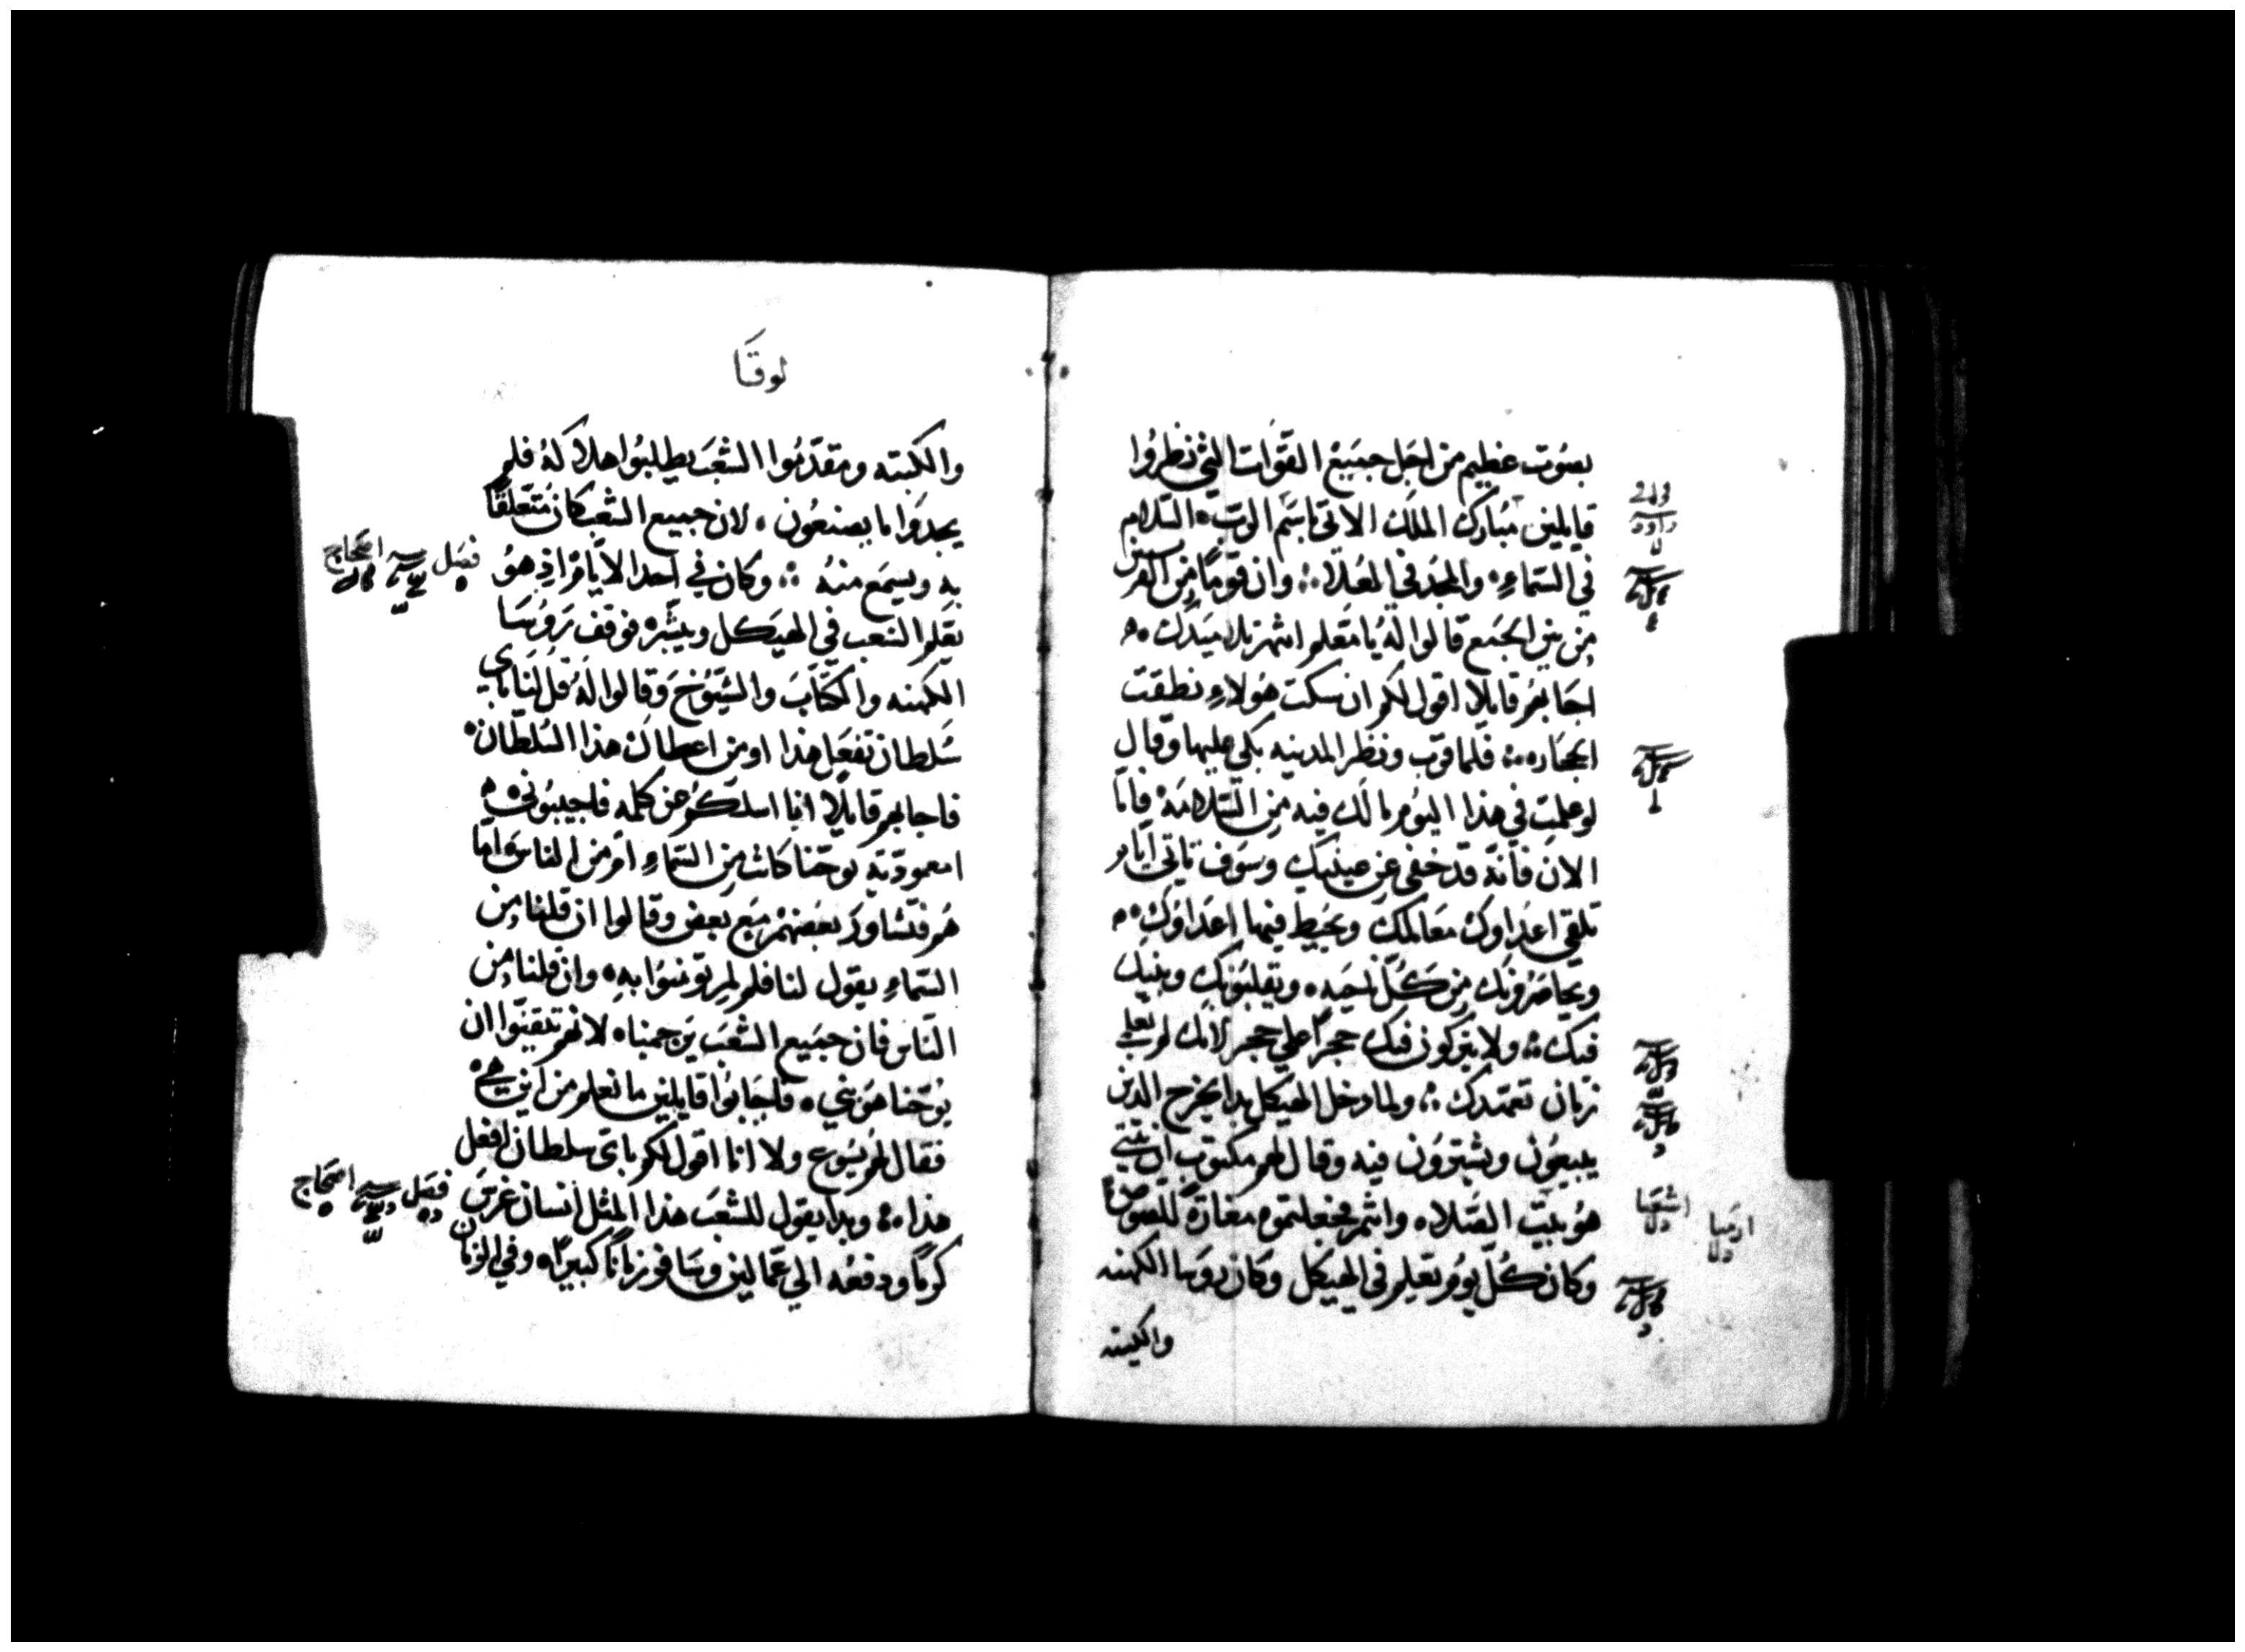 بصوت عظيم من اجل جميع القوات التي نظروا
قايلين مبارك الملك الاتي باسم الرب السلام
في السماء والمجد في العلا وان قوما من الفريسين
من بين الجمع قالوا له يا معلم انتهر تلاميدك
اجابهر قايلا اقول لكم ان سكت هولاء نطقت
الحجاره فلما قرب ونظر المدينه بكي عليها وقال
لو علمت في هذا اليوم ما لك فيه من السلامه فاما
الان فانه قد خفي عن عينيك وسوف تاتي ايام
تلقي اعداوك معالمك ويحيط فيها اعداوك
ويحاصرونك من كل ناحيه ويقلبونك وبنيك
فيك ولا يتركون فيك حجرا علي حجر لانك لم تعلمي
زمان تعمدك ولما دخل الهيكل بدا يخرج الدين
يبيعون ويشترون فيه وقال لهم مكتوب ان بيتي
هو بيت الصلاه وانتم فجعلتموه مغارة للصوص
وكان كل يوم يعلم في الهيكل وكان روسا الكهنه
والكتبه
داود
اشعيا
ارميا
لوقا
والكتبه ومقدموا الشعب يطلبوا هلاكه فلم
يجدوا ما يصنعون لان جميع الشعب كان متعلقا
به ويسمع منه وكان في احد الايام اذ هو
يعلم الشعب في الهيكل ويبشره فوقف روسا
الكهنه والكتاب والشيوخ وقالوا له قل لنا باي
سلطان تفعل هذا او من اعطاك هذا السلطان
فاجابهم قايلا انا اسلكم عن كلمه فاجيبوني
امعمودية يوحنا كانت من السماء ام من الناس واما
هم فتشاور بعضهم مع بعض وقالوا ان قلنا من
السماء يقول لنا فلم لم تومنوا به وان قلنا من
الناس فان جميع الشعب يرجمنا لانهم تيقنوا ان
يوحنا هو نبي فاجابوا قايلين ما نعلم من اين هي
فقال لهم يسوع ولا انا اقول لكم باي سلطان افعل
هذا وبدا يقول للشعب هذا المثل انسان غرس
كرما ودفعه الي عمالين وسافر زمانا كبيرا وفي الزمان
فصل
اصحاح
فصل
اصحاح